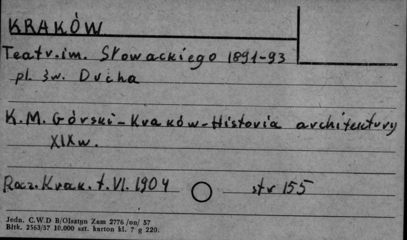 KRAKÓW
Teatr.im. Słowackiego 1891-93
pl. św. Ducha
K.M. Górski-Kraków-Historia architektury
XIXw.
Rocz.Krak.t.VI.1904 str 155
Jedn. C.W.D B/Olsztyn Zam 2776 /on/ 57
Bitk. 2563/57 10.000 szt. karton kl. 7 g 220.